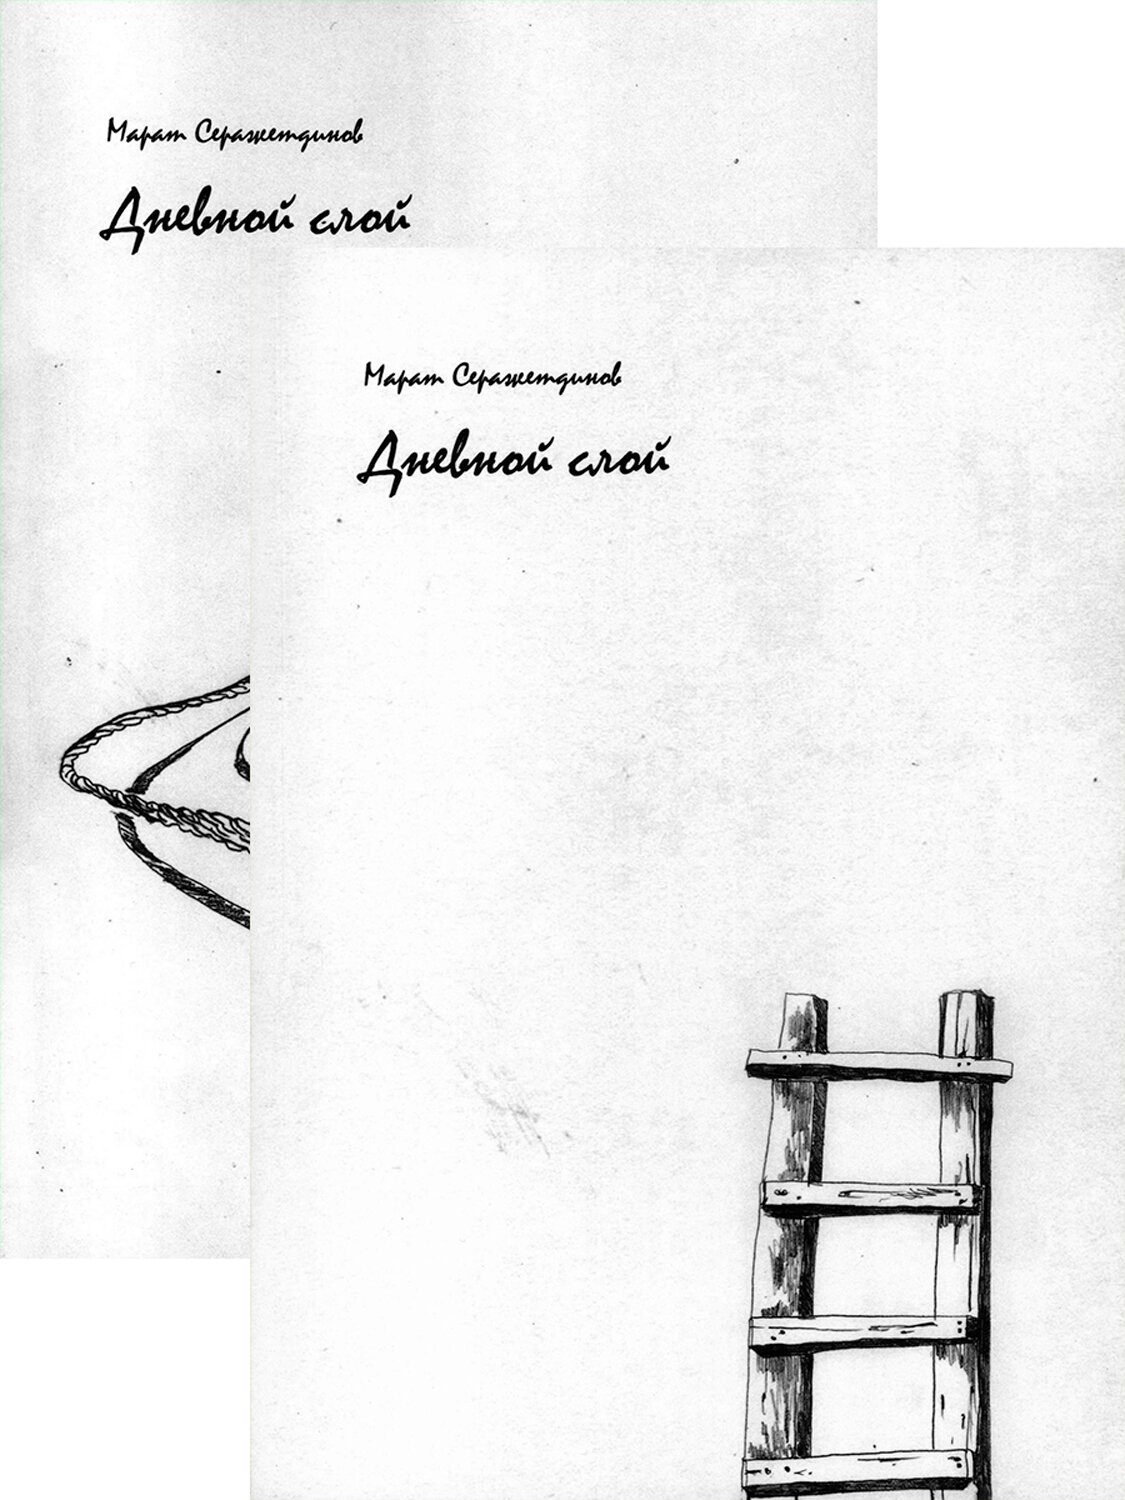 Марат Серажетдинов
Дневной слой
Марат Серажетдинов
Дневной слой